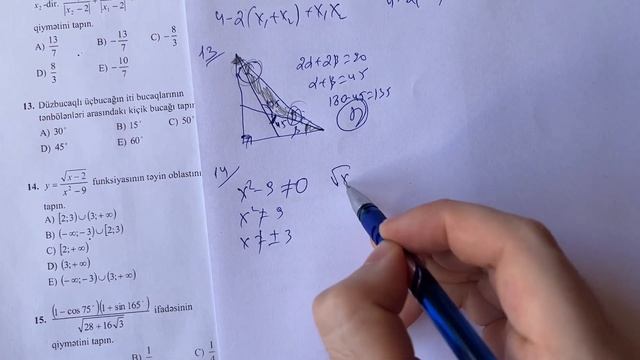 x₂-dir. |x₂-2| |x₁-2|
qiymətini tapın.
A) 13/7 B) -13/7 C) -8/3
D) 8/3 E) -10/7
13. Düzbucaqlı üçbucağın iti bucaqlarının
tənbölənləri arasındakı kiçik bucağı tapın
A) 30° B) 15° C) 50°
D) 45° E) 60°
14. y=√(x-2)/(x²-9) funksiyasının təyin oblastını
tapın.
A) [2;3)∪(3;+∞)
B) (-∞;-3)∪[2;3)
C) [2;+∞)
D) (3;+∞)
E) (-∞;-3)∪(3;+∞)
15. (1-cos 75°)(1+sin 165°)/√(28+16√3) ifadəsinin
qiymətini tapın.
B) 1 C) 1/4
4-2(x₁+x₂)+x₁x₂
13/
2α+2β=90
α+β=45
180-45=135
45
14/
x²-9≠0 √x
x²≠9
x≠±3